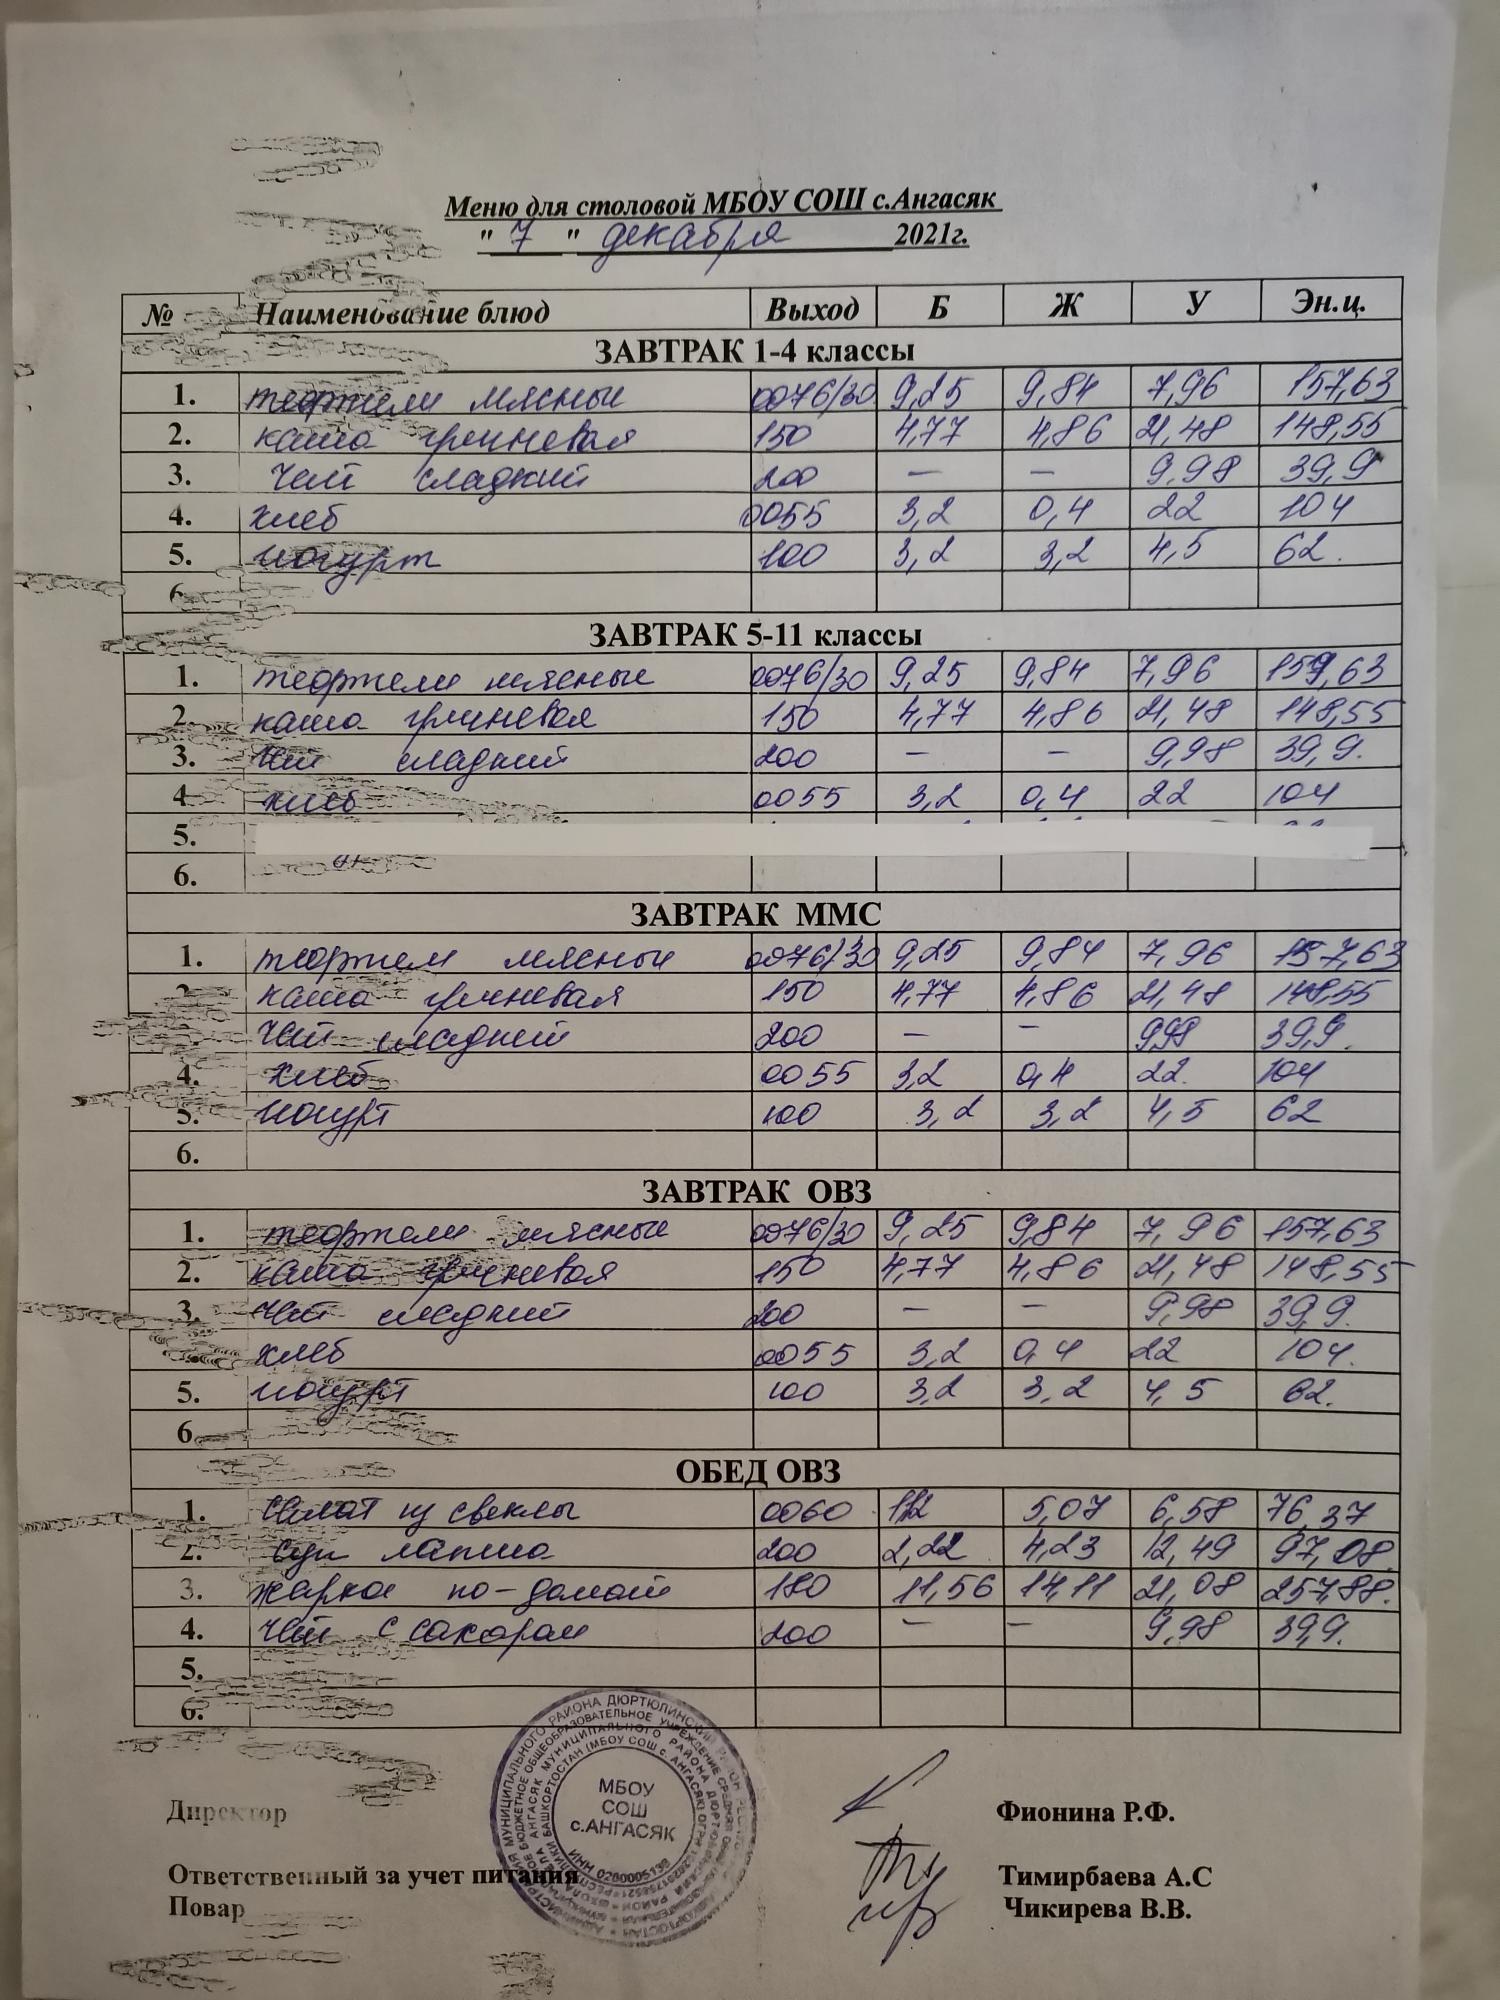 Меню для столовой МБОУ СОШ с.Ангасяк
" 7 " декабря 2021г.
№ Наименование блюд Выход Б Ж У Эн.ц.
ЗАВТРАК 1-4 классы
1. тефтели мясные 0076/30 9,25 9,84 7,96 157,63
2. каша гречневая 150 4,77 4,86 21,48 148,55
3. Чай сладкий 200 – – 9,98 39,9
4. хлеб 0055 3,2 0,4 22 104
5. йогурт 100 3,2 3,2 4,5 62.
6.
ЗАВТРАК 5-11 классы
1. тефтели мясные 0076/30 9,25 9,84 7,96 157,63
2. каша гречневая 150 4,77 4,86 21,48 148,55
3. Чай сладкий 200 – – 9,98 39,9.
4. хлеб 0055 3,2 0,4 22 104
5.
6.
ЗАВТРАК ММС
1. тефтели мясные 0076/30 9,25 9,84 7,96 157,63
каша гречневая 150 4,77 4,86 21,48 148,55
Чай сладкий 200 – – 9,98 39,9.
4. хлеб 0055 3,2 0,4 22. 104
5. йогурт 100 3,2 3,2 4,5 62
6.
ЗАВТРАК ОВЗ
1. тефтели мясные 0076/30 9,25 9,84 7,96 157,63
2. каша гречневая 150 4,77 4,86 21,48 148,55
3. Чай сладкий 200 – – 9,98 39,9.
хлеб 0055 3,2 0,4 22 104.
5. йогурт 100 3,2 3,2 4,5 62.
6.
ОБЕД ОВЗ
1. Салат из свеклы 0060 1,12 5,07 6,58 76,37
2. Суп лапша 200 2,22 4,23 12,49 97,08.
3. жаркое по-домаш 180 11,56 14,11 21,08 257,88.
4. Чай с сахаром 200 – – 9,98 39,9.
5.
6.
МБОУ
СОШ
с.АНГАСЯК
ИНН 0260005138
Директор Фионина Р.Ф.
Ответственный за учет питания Тимирбаева А.С
Повар Чикирева В.В.